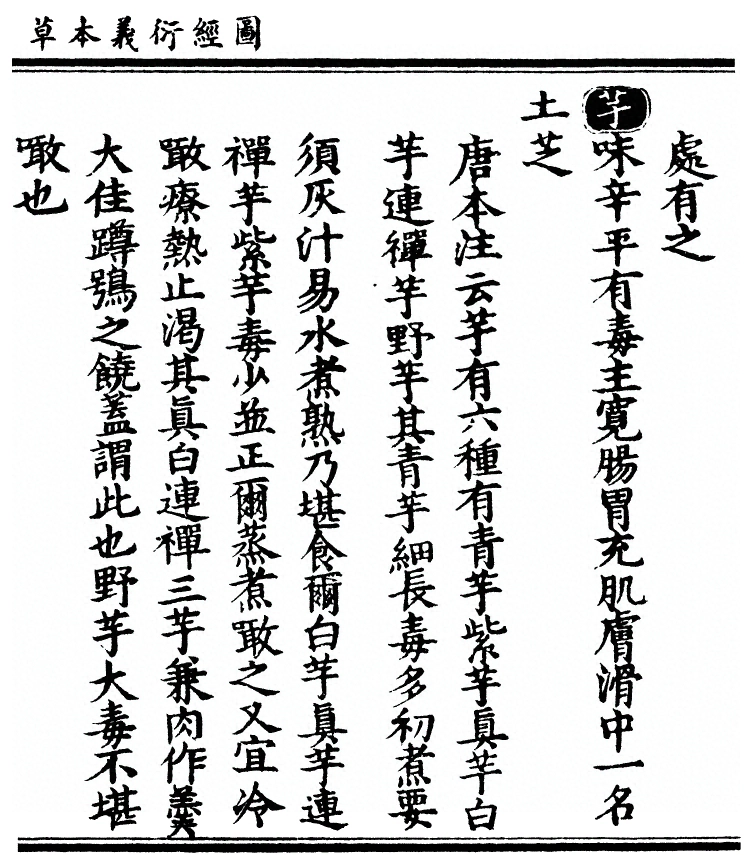 圖經衍義本草
處有之
芋味辛平有毒主寬腸胃充肌膚滑中一名
土芝
唐本注云芋有六種有青芋紫芋眞芋白
芋連禪芋野芋其青芋細長毒多初煮要
須灰汁易水煮熟乃堪食爾白芋眞芋連
禪芋紫芋毒少並正爾蒸煮噉之又宜冷
噉療熱止渴其眞白連禪三芋兼肉作羹
大佳蹲鴞之饒蓋謂此也野芋大毒不堪
噉也